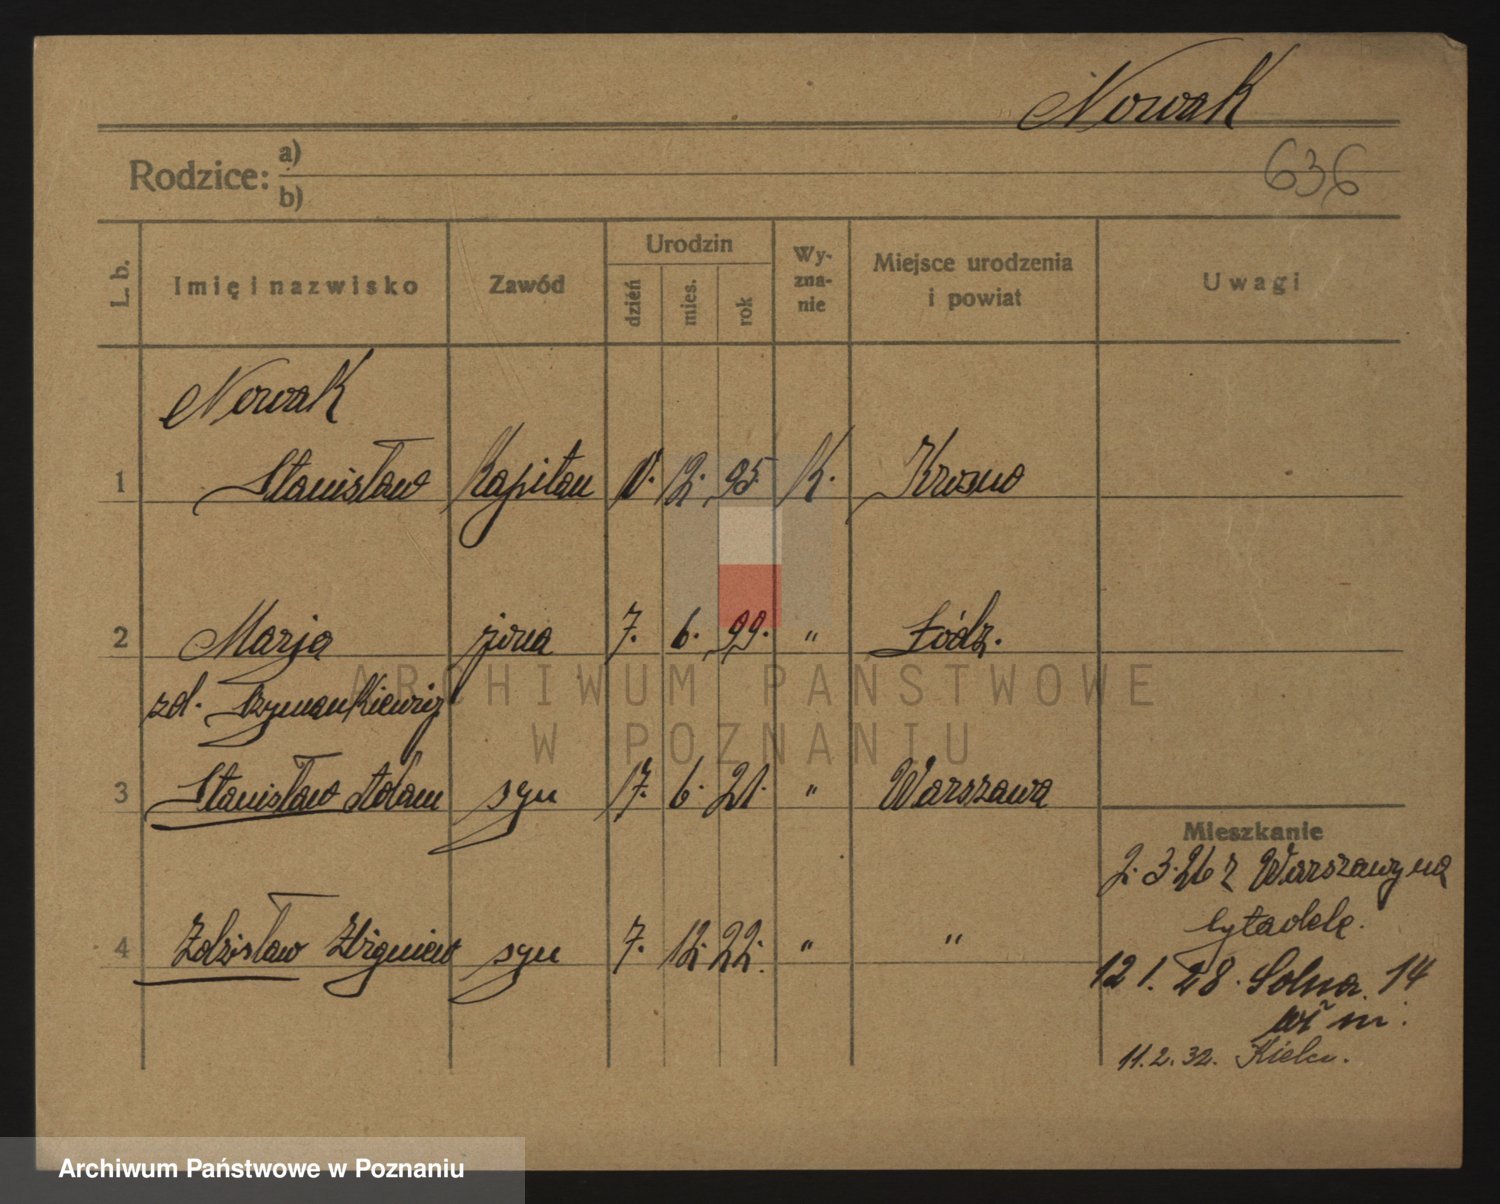 Nowak
636
Rodzice: a)
b)
L. b. Imię i nazwisko Zawód Urodzin dzień mies. rok Wy-zna-nie Miejsce urodzenia i powiat Uwagi
Nowak
1 Stanisław Kapitan 12. 95. K. Krosno
2 Marja żona 7. 6. 99. " Łódz.
zd. Szymankiewicz
3 Stanisław Adam syn 17. 6. 21. " Warszawa
Mieszkanie
2. 3. 26 z Warszawy na
cytadelę.
4 Zdzisław Zbigniew syn 7. 12. 22. " "
12 1. 28. Solna. 14
11. 2. 32. Kielce.
ARCHIWUM PAŃSTWOWE
W POZNANIU
Archiwum Państwowe w Poznaniu